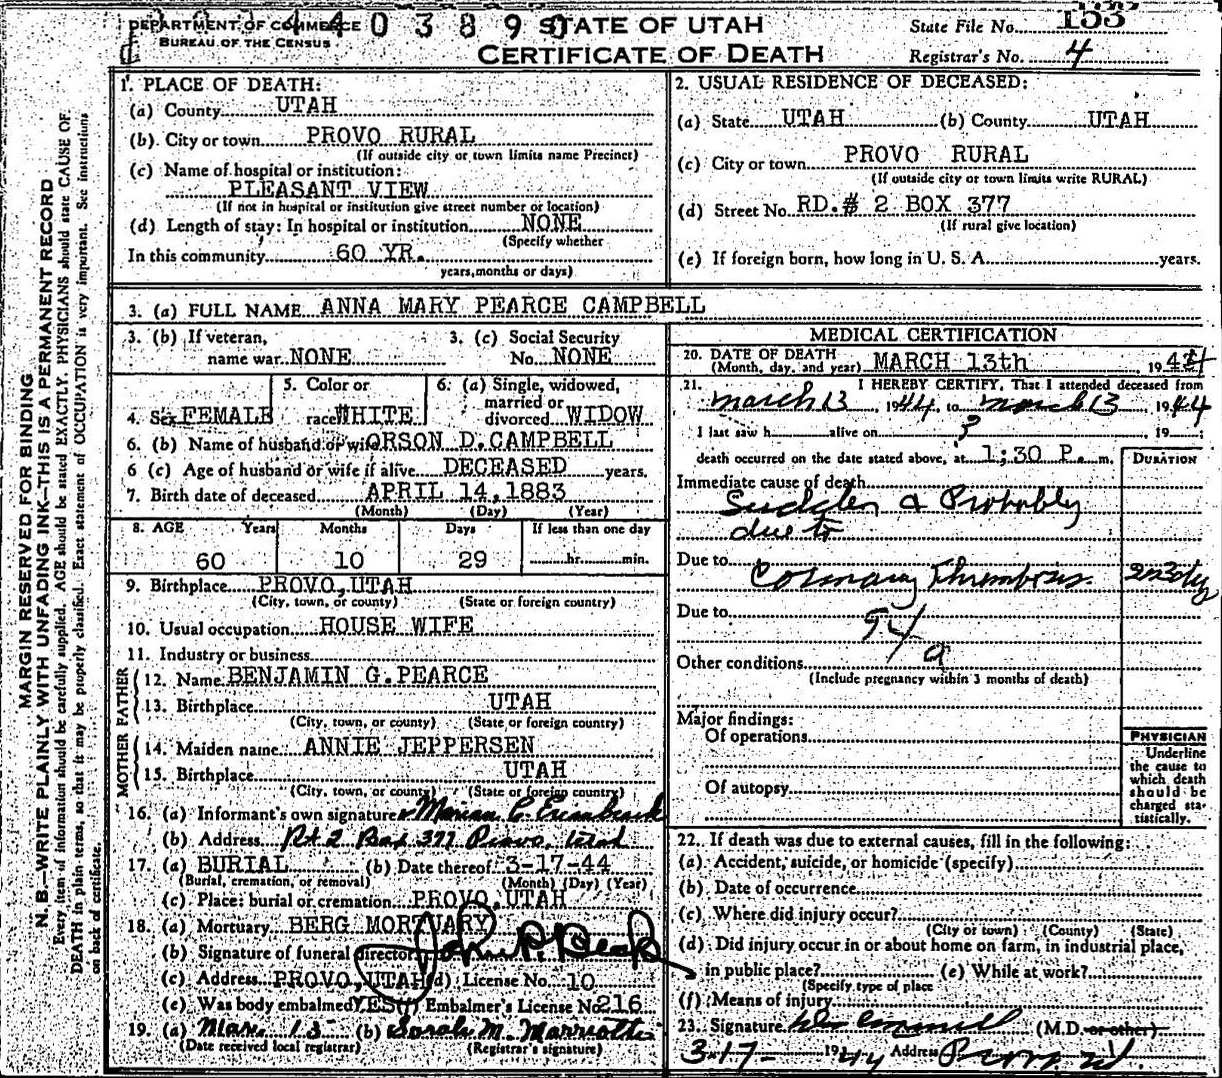 DEPARTMENT OF COMMERCE
BUREAU OF THE CENSUS
4 4 0 3 8 9 0
STATE OF UTAH
CERTIFICATE OF DEATH
State File No. 153
Registrar's No. 4
MARGIN RESERVED FOR BINDING
N. B.—WRITE PLAINLY WITH UNFADING INK—THIS IS A PERMANENT RECORD
Every item of information should be carefully supplied. AGE should be stated EXACTLY. PHYSICIANS should state CAUSE OF
DEATH in plain terms, so that it may be properly classified. Exact statement of OCCUPATION is very important. See instructions
on back of certificate.
1. PLACE OF DEATH:
(a) County UTAH
(b) City or town PROVO RURAL
(If outside city or town limits name Precinct)
(c) Name of hospital or institution:
PLEASANT VIEW
(If not in hospital or institution give street number or location)
(d) Length of stay: In hospital or institution NONE
(Specify whether
In this community 60 YR.
years, months or days)
2. USUAL RESIDENCE OF DECEASED:
(a) State UTAH (b) County UTAH
(c) City or town PROVO RURAL
(If outside city or town limits write RURAL)
(d) Street No. RD.# 2 BOX 377
(If rural give location)
(e) If foreign born, how long in U. S. A. years.
3. (a) FULL NAME ANNA MARY PEARCE CAMPBELL
3. (b) If veteran,
name war NONE
3. (c) Social Security
No. NONE
4. Sex FEMALE
5. Color or
race WHITE
6. (a) Single, widowed,
married or
divorced WIDOW
6. (b) Name of husband or wife ORSON D. CAMPBELL
6 (c) Age of husband or wife if alive DECEASED years.
7. Birth date of deceased APRIL 14, 1883
(Month) (Day) (Year)
8. AGE Years Months Days If less than one day
60 10 29 hr. min.
9. Birthplace PROVO, UTAH
(City, town, or county) (State or foreign country)
10. Usual occupation HOUSE WIFE
11. Industry or business
FATHER
12. Name BENJAMIN G. PEARCE
13. Birthplace UTAH
(City, town, or county) (State or foreign country)
MOTHER
14. Maiden name ANNIE JEPPERSEN
15. Birthplace UTAH
(City, town, or county) (State or foreign country)
16. (a) Informant's own signature Marian C.
(b) Address Rt 2 Box 377 Provo, Utah
17. (a) BURIAL (b) Date thereof 3-17-44
(Burial, cremation, or removal) (Month) (Day) (Year)
(c) Place: burial or cremation PROVO, UTAH
18. (a) Mortuary BERG MORTUARY
(b) Signature of funeral director John P.
(c) Address PROVO, UTAH (d) License No. 10
(e) Was body embalmed YES Embalmer's License No. 216
19. (a) Mar. 15 (b) Sarah M. Marriotti
(Date received local registrar) (Registrar's signature)
MEDICAL CERTIFICATION
20. DATE OF DEATH
(Month, day, and year) MARCH 13th 1944
21. I HEREBY CERTIFY, That I attended deceased from
March 13, 1944, to March 13, 1944
I last saw h alive on ? 19 ;
death occurred on the date stated above, at 1:30 P. m.
DURATION
Immediate cause of death
Sudden & Probably
due to
Due to Coronary Thrombosis.
Due to
94
a
Other conditions
(Include pregnancy within 3 months of death)
Major findings:
Of operations
Of autopsy
PHYSICIAN
Underline
the cause to
which death
should be
charged sta-
tistically.
22. If death was due to external causes, fill in the following:
(a) Accident, suicide, or homicide (specify)
(b) Date of occurrence
(c) Where did injury occur?
(City or town) (County) (State)
(d) Did injury occur in or about home on farm, in industrial place,
in public place? (e) While at work?
(Specify type of place
(f) Means of injury
23. Signature (M.D. or other)
3-17- 1944 Address Provo, Ut.